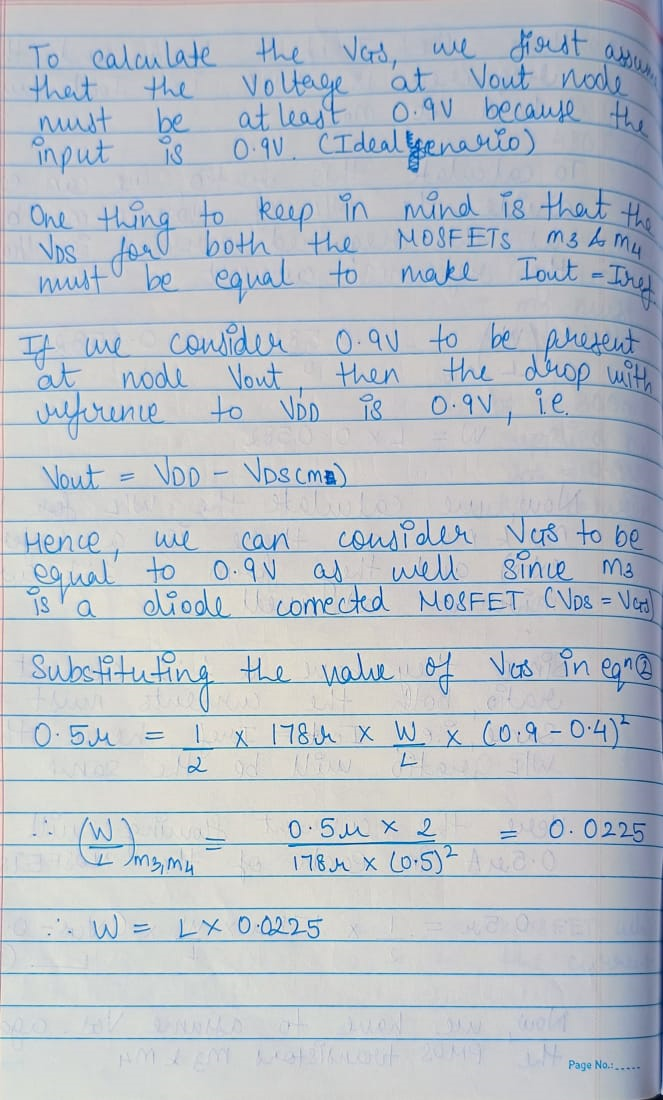 To calculate the VGS, we first assum
that the Voltage at Vout node
must be at least 0.9V because the
input is 0.9V. (Ideal senario)
One thing to keep in mind is that the
VDS for both the MOSFETS m3 & m4
must be equal to make Iout = Iref
If we consider 0.9V to be present
at node Vout, then the drop with
reference to VDD is 0.9V, i.e.
Vout = VDD - VDS(m)
Hence, we can consider VGS to be
equal to 0.9V as well since m3
is a diode connected MOSFET (VDS = VGS)
Substituting the value of VGS in eqn ②
0.5μ = 1/2 × 178μ × W/L × (0.9 - 0.4)²
∴ (W/L)m3,m4 = 0.5μ × 2 / 178μ × (0.5)² = 0.0225
∴ W = L × 0.0225
Page No.:.....